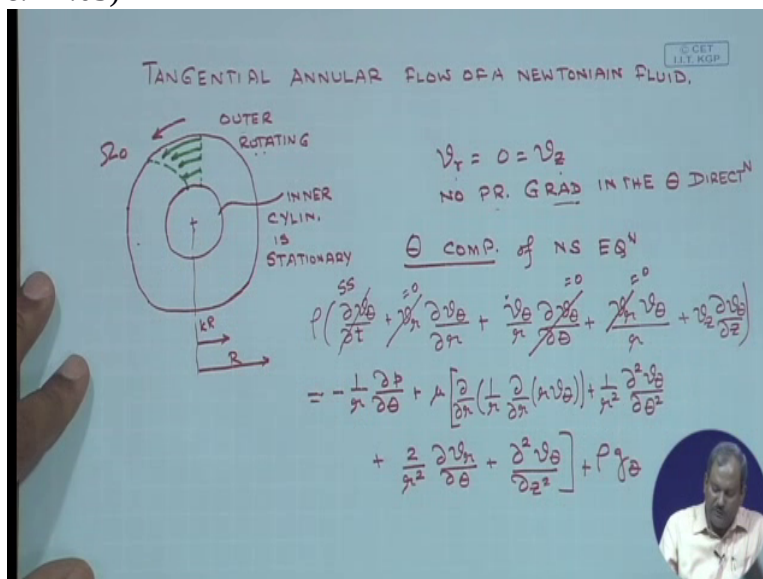 © CET
I.I.T. KGP
TANGENTIAL ANNULAR FLOW OF A NEWTONIAIN FLUID.
OUTER
ROTATING
Ω₀
INNER
CYLIN.
IS
STATIONARY
kR
R
v_r = 0 = v_z
NO PR. GRAD IN THE θ DIRECTᴺ
θ COMP. of NS EQᴺ
SS =0 =0 =0
ρ(∂v_θ/∂t + v_r ∂v_θ/∂r + v_θ/r ∂v_θ/∂θ + v_r v_θ/r + v_z ∂v_θ/∂z)
= - 1/r ∂p/∂θ + μ[∂/∂r(1/r ∂/∂r(r v_θ)) + 1/r² ∂²v_θ/∂θ²
+ 2/r² ∂v_r/∂θ + ∂²v_θ/∂z²] + ρg_θ